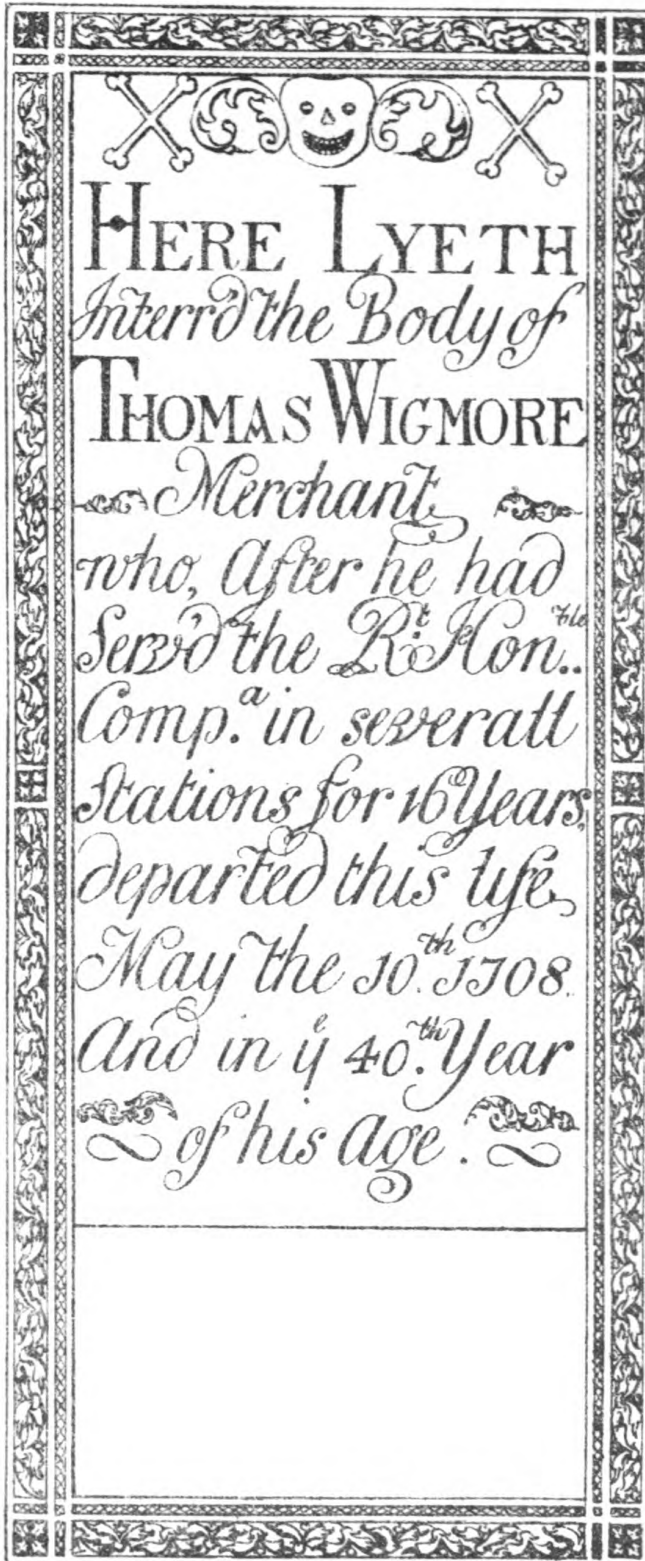 HERE LYETH
Interr'd the Body of
THOMAS WIGMORE
Merchant
who, After he had
Serv'd the Rt. Honble..
Comp.a in severall
Stations for 16 Years,
departed this life
May the 10.th 1708.
And in ye 40.th Year
of his Age.